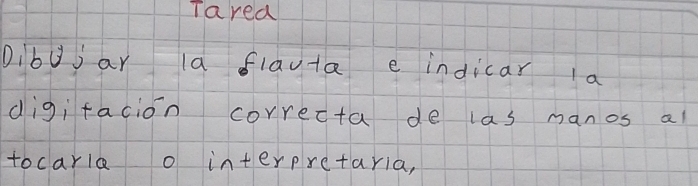 Tarea
Dibujar la flauta e indicar la
digitación correcta de las manos al
tocarla o interpretarla,